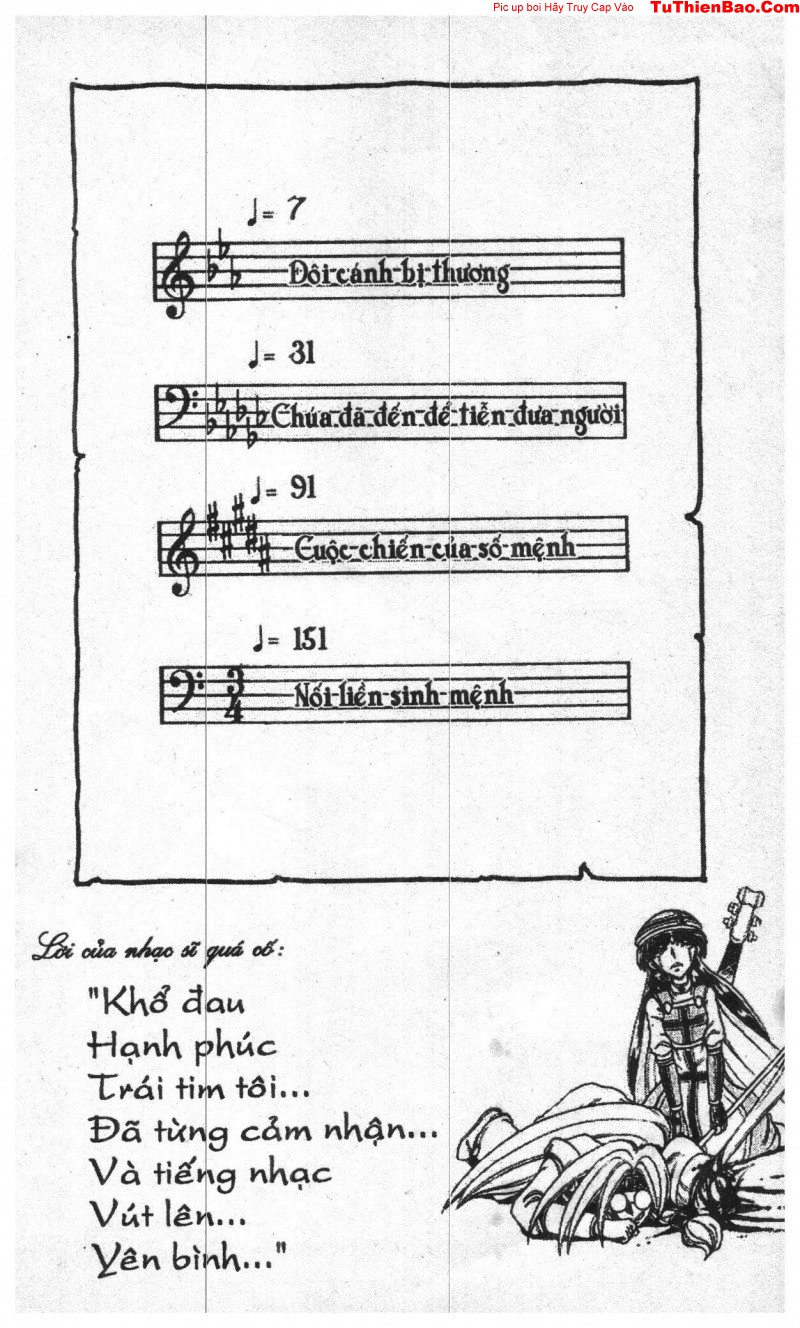 Pic up boi Hãy Truy Cap Vào TuThienBao.Com
♩= 7
Đôi cánh bị thương
♩= 31
Chúa đã đến để tiễn đưa người
♩= 91
Cuộc chiến của số mệnh
♩= 151
3
4
Nối liền sinh mệnh
Lời của nhạc sĩ quá cố:
"Khổ đau
Hạnh phúc
Trái tim tôi...
Đã từng cảm nhận...
Và tiếng nhạc
Vút lên...
Yên bình..."